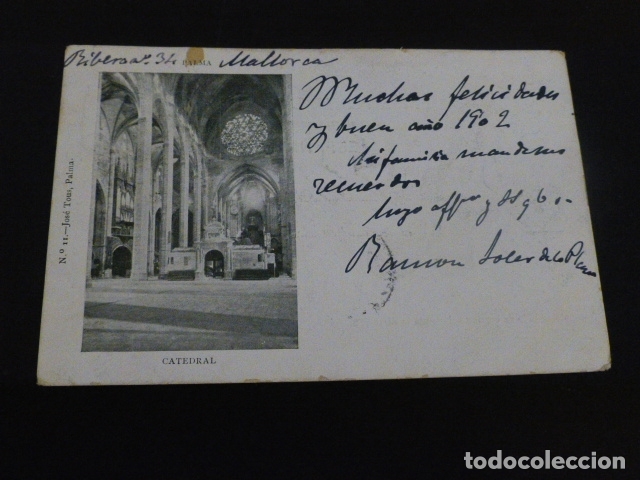 Ribera nº 34 PALMA Mallorca
Muchas felicidades
y buen año 1902
Mi familia manda sus
recuerdos
suyo affmo y SS q b s m
Ramon Soler de la Plana
N.º 11.—José Tous, Palma.
CATEDRAL
todocoleccion.net